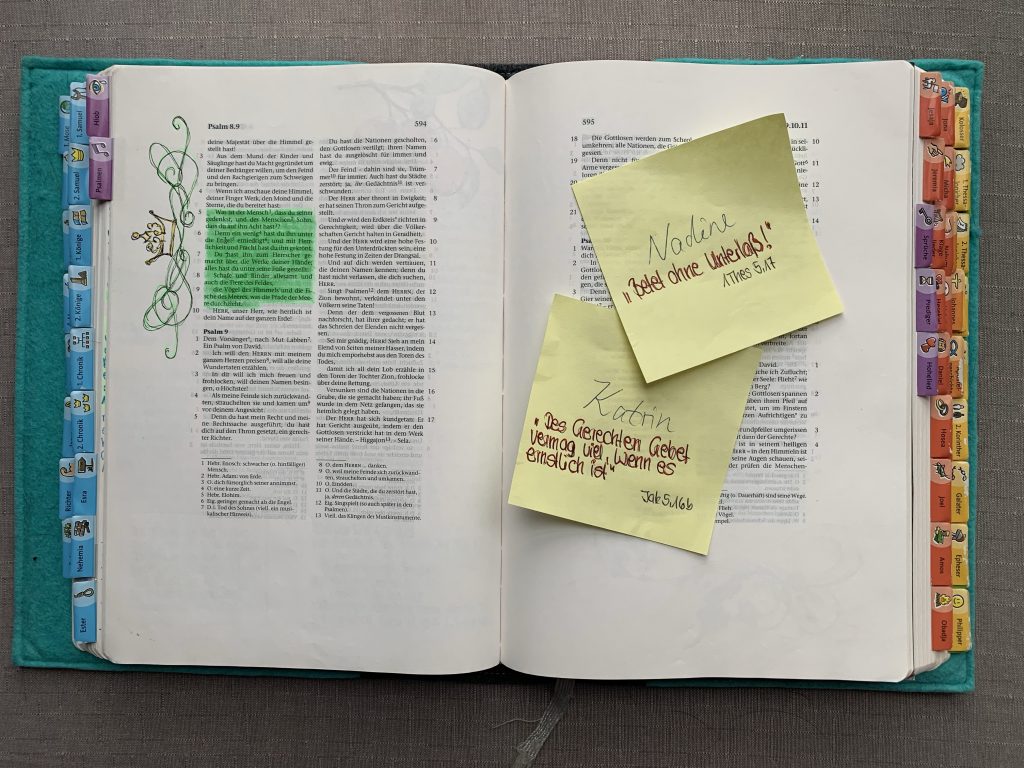 Psalm 8.9
594
deine Majestät über die Himmel ge-
stellt hast!
3 Aus dem Mund der Kinder und
Säuglinge hast du Macht gegründet um
deiner Bedränger willen, um den Feind
und den Rachgierigen zum Schweigen
zu bringen.
4 Wenn ich anschaue deine Himmel,
deiner Finger Werk, den Mond und die
Sterne, die du bereitet hast:
5 Was ist der Mensch¹, dass du seiner
gedenkst, und des Menschen² Sohn,
dass du auf ihn Acht hast³?
6 Denn ein wenig⁴ hast du ihn unter
die Engel⁵ erniedrigt⁶; und mit Herr-
lichkeit und Pracht hast du ihn gekrönt.
7 Du hast ihn zum Herrscher ge-
macht über die Werke deiner Hände;
alles hast du unter seine Füße gestellt:
8 Schafe und Rinder allesamt und
auch die Tiere des Feldes,
9 die Vögel des Himmels und die Fi-
sche des Meeres, was die Pfade der Mee-
re durchzieht.
10 HERR, unser Herr, wie herrlich ist
dein Name auf der ganzen Erde!
Psalm 9
1 Dem Vorsänger⁷, nach Mut Labben⁷.
Ein Psalm von David.
2 Ich will den HERRN mit meinem
ganzen Herzen preisen⁸, will alle deine
Wundertaten erzählen.
3 In dir will ich mich freuen und
frohlocken, will deinen Namen besin-
gen, o Höchster!
4 Als meine Feinde sich zurückwand-
ten, strauchelten sie und kamen um⁹
vor deinem Angesicht.
5 Denn du hast mein Recht und mei-
ne Rechtssache ausgeführt; du hast
dich auf den Thron gesetzt, ein gerech-
ter Richter.
Du hast die Nationen gescholten, 6
den Gottlosen vertilgt; ihren Namen
hast du ausgelöscht für immer und
ewig.
Der Feind – dahin sind sie, Trüm- 7
mer¹⁰ für immer. Auch hast du Städte
zerstört; ja, ihr Gedächtnis¹¹ ist ver-
schwunden.
Der HERR aber thront in Ewigkeit; 8
er hat seinen Thron zum Gericht aufge-
stellt.
Und er wird den Erdkreis richten in 9
Gerechtigkeit, wird über die Völker-
schaften Gericht halten in Geradheit.
Und der HERR wird eine hohe Fes- 10
tung für den Unterdrückten sein, eine
hohe Festung in Zeiten der Drangsal.
Und auf dich werden vertrauen, 11
die deinen Namen kennen; denn du
hast nicht verlassen, die dich suchen,
HERR.
Singt Psalmen¹² dem HERRN, der 12
Zion bewohnt, verkündet unter den
Völkern seine Taten!
Denn der dem vergossenen Blut 13
nachforscht, hat ihrer gedacht; er hat
das Schreien der Elenden nicht verges-
sen.
Sei mir gnädig, HERR! Sieh an mein 14
Elend von Seiten meiner Hasser, indem
du mich emporhebst aus den Toren des
Todes,
damit ich all dein Lob erzähle in 15
den Toren der Tochter Zion, frohlocke
über deine Rettung.
Versunken sind die Nationen in die 16
Grube, die sie gemacht haben; ihr Fuß
wurde in dem Netz gefangen, das sie
heimlich gelegt haben.
Der HERR hat sich kundgetan: Er hat 17
Gericht ausgeübt, indem er den
Gottlosen verstrickt hat in dem Werk
seiner Hände. – Higgajon¹³. – Sela.
1 Hebr. Enosch: schwacher (o. hinfälliger)
Mensch.
2 Hebr. Adam; von Erde.
3 O. dich fürsorglich seiner annimmst.
4 O. eine kurze Zeit.
5 Hebr. Elohim.
6 Eig. geringer gemacht als die Engel.
7 D.i. Tod des Sohnes (viell. ein musi-
kalischer Hinweis).
8 O. dem HERRN – danken.
9 O. weil meine Feinde sich zurückwand-
ten, strauchelten und umkamen.
10 O. Einöden.
11 O. Und die Städte, die du zerstört hast,
ja, deren Gedächtnis.
12 Eig. Singspielt (so auch später in den
Psalmen).
13 Viell. das Klingen der Musikinstrumente.
595
9.10.11
18 Die Gottlosen werden zum
umkehren; alle Nationen, die
gessen.
19 Denn nicht für
Arme verge
Nadine
"Betet ohne Unterlaß!"
1Thes 5,17
Katrin
"Des Gerechten Gebet
vermag viel, wenn es
ernstlich ist"
Jak 5,16b
David.
ich Zuflucht;
Seele: Flieht² wie
Berg?
Gottlosen spannen
haben ihren Pfeil auf
um im Finstern
Aufrichtigen" zu
Grundpfeiler umgerissen
dann der Gerechte?
ist in seinem heiligen
HERR – in den Himmeln ist
seine Augen schauen, sei-
der prüfen die Menschen-
Hiob
Psalmen
1. Mose
1. Samuel
2. Samuel
1. Könige
2. Könige
1. Chronik
2. Chronik
Richter
Esra
Nehemia
Ester
Jesaja
Jona
Kolosser
Jeremia
Micha
1. Thessa
Sprüche
2. Thessa
Prediger
Hohelied
Daniel
Hosea
2. Korinther
Joel
Galater
Amos
Epheser
Obadja
Philipper